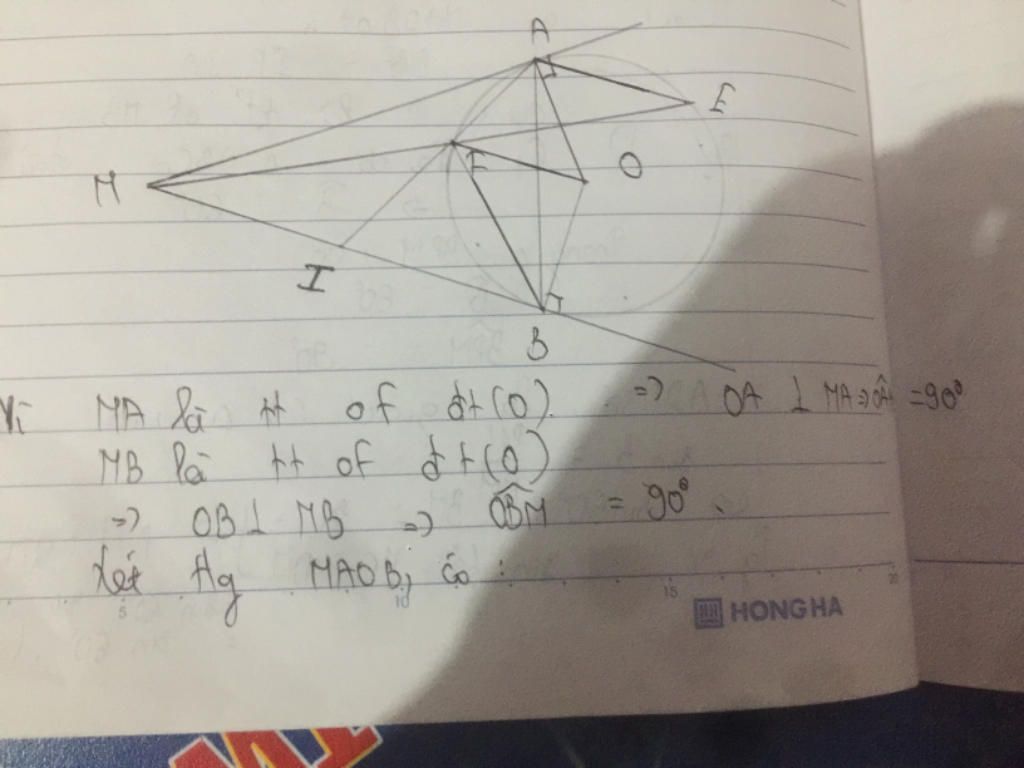 A
E
M
F
O
I
B
Vì MA là tt of đt(O). => OA ⊥ MA => = 90°
MB là tt of đt(O)
=> OB ⊥ MB => OBM = 90°.
Xét tg MAOB, có :
5 10 15 20
HONG HA